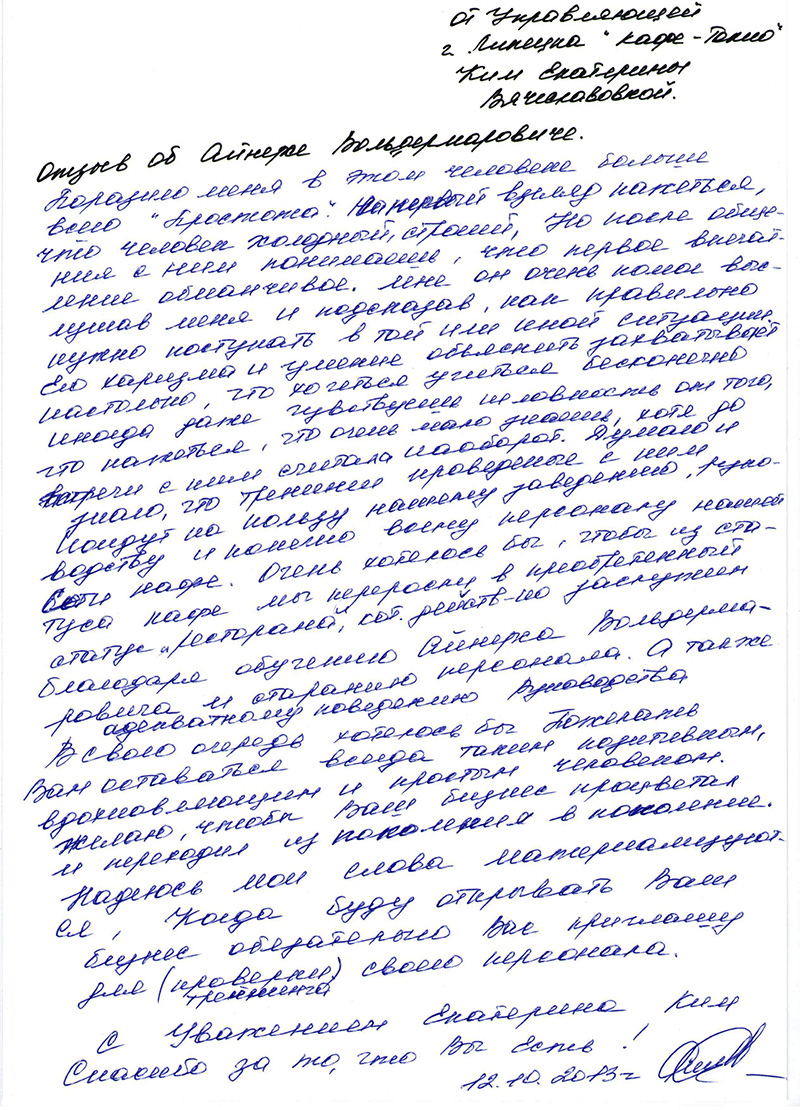 от Управляющей
г. Липецка "Кафе-Токио"
Ким Екатерины
Вячеславовной.
Отзыв об Айнеже Вольдемаровиче.
Поразило меня в этом человеке больше
всего "Простота". На первый взгляд кажеться,
что человек холодный, строгий, Но после обще-
ния с ним понимаешь, что первое впечат-
ление обманчивое. Мне он очень помог выс-
лушав меня и подсказав, как правильно
нужно поступать в той или иной ситуации.
Его харизма и умение объяснить захватывает
настолько, что хочеться учиться бесконечно
иногда даже чувствуешь неловкость от того,
что кажеться, что очень мало знаешь, хотя до
встречи с ним считала наоборот. Думаю и
знаю, что тренинги проведеные с ним
пойдут на пользу нашему заведению, руко-
водству и конешно всему персоналу нашей
сети кафе. Очень хотелось бы, чтобы из ста-
туса кафе мы переросли в приобретенный
статус "Ресторана", кот. действ-но заслужен
благодаря обучению Айнежа Вольдема-
ровича и старанию персонала. А также
адекватному поведению Руководства
В свою очередь хотелось бы Пожелать
Вам оставаться всегда таким позитивным,
вдохновляющим и простым человеком.
Желаю, чтобы Ваш бизнес процветал
и переходил из поколения в поколение.
Надеюсь мои слова материализуют-
ся, Когда буду открывать Ваш
бизнес обязательно Вас приглашу
для (проверки) своего персонала.
тренинга
С Уважением Екатерина Ким
Спасибо за то, что Вы есть!
12.10.2013г